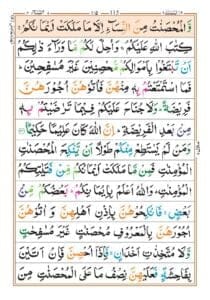 وَّالْمُحْصَنٰتُ مِنَ النِّسَآءِ اِلَّا مَا مَلَكَتْ اَيْمَانُكُمْ ۚ
كِتٰبَ اللّٰهِ عَلَيْكُمْ ۚ وَاُحِلَّ لَكُمْ مَّا وَرَآءَ ذٰلِكُمْ
اَنْ تَبْتَغُوْا بِاَمْوَالِكُمْ مُّحْصِنِيْنَ غَيْرَ مُسٰفِحِيْنَ ؕ
فَمَا اسْتَمْتَعْتُمْ بِهٖ مِنْهُنَّ فَاٰتُوْهُنَّ اُجُوْرَهُنَّ
فَرِيْضَةً ؕ وَلَا جُنَاحَ عَلَيْكُمْ فِيْمَا تَرٰضَيْتُمْ بِهٖ
مِنْۢ بَعْدِ الْفَرِيْضَةِ ؕ اِنَّ اللّٰهَ كَانَ عَلِيْمًا حَكِيْمًا
وَمَنْ لَّمْ يَسْتَطِعْ مِنْكُمْ طَوْلًا اَنْ يَّنْكِحَ الْمُحْصَنٰتِ
الْمُؤْمِنٰتِ فَمِنْ مَّا مَلَكَتْ اَيْمَانُكُمْ مِّنْ فَتَيٰتِكُمُ
الْمُؤْمِنٰتِ ؕ وَاللّٰهُ اَعْلَمُ بِاِيْمَانِكُمْ ؕ بَعْضُكُمْ مِّنْۢ
بَعْضٍ ۚ فَانْكِحُوْهُنَّ بِاِذْنِ اَهْلِهِنَّ وَاٰتُوْهُنَّ
اُجُوْرَهُنَّ بِالْمَعْرُوْفِ مُحْصَنٰتٍ غَيْرَ مُسٰفِحٰتٍ
وَّلَا مُتَّخِذٰتِ اَخْدَانٍ ۚ فَاِذَاۤ اُحْصِنَّ فَاِنْ اَتَيْنَ
بِفَاحِشَةٍ فَعَلَيْهِنَّ نِصْفُ مَا عَلَى الْمُحْصَنٰتِ مِنَ